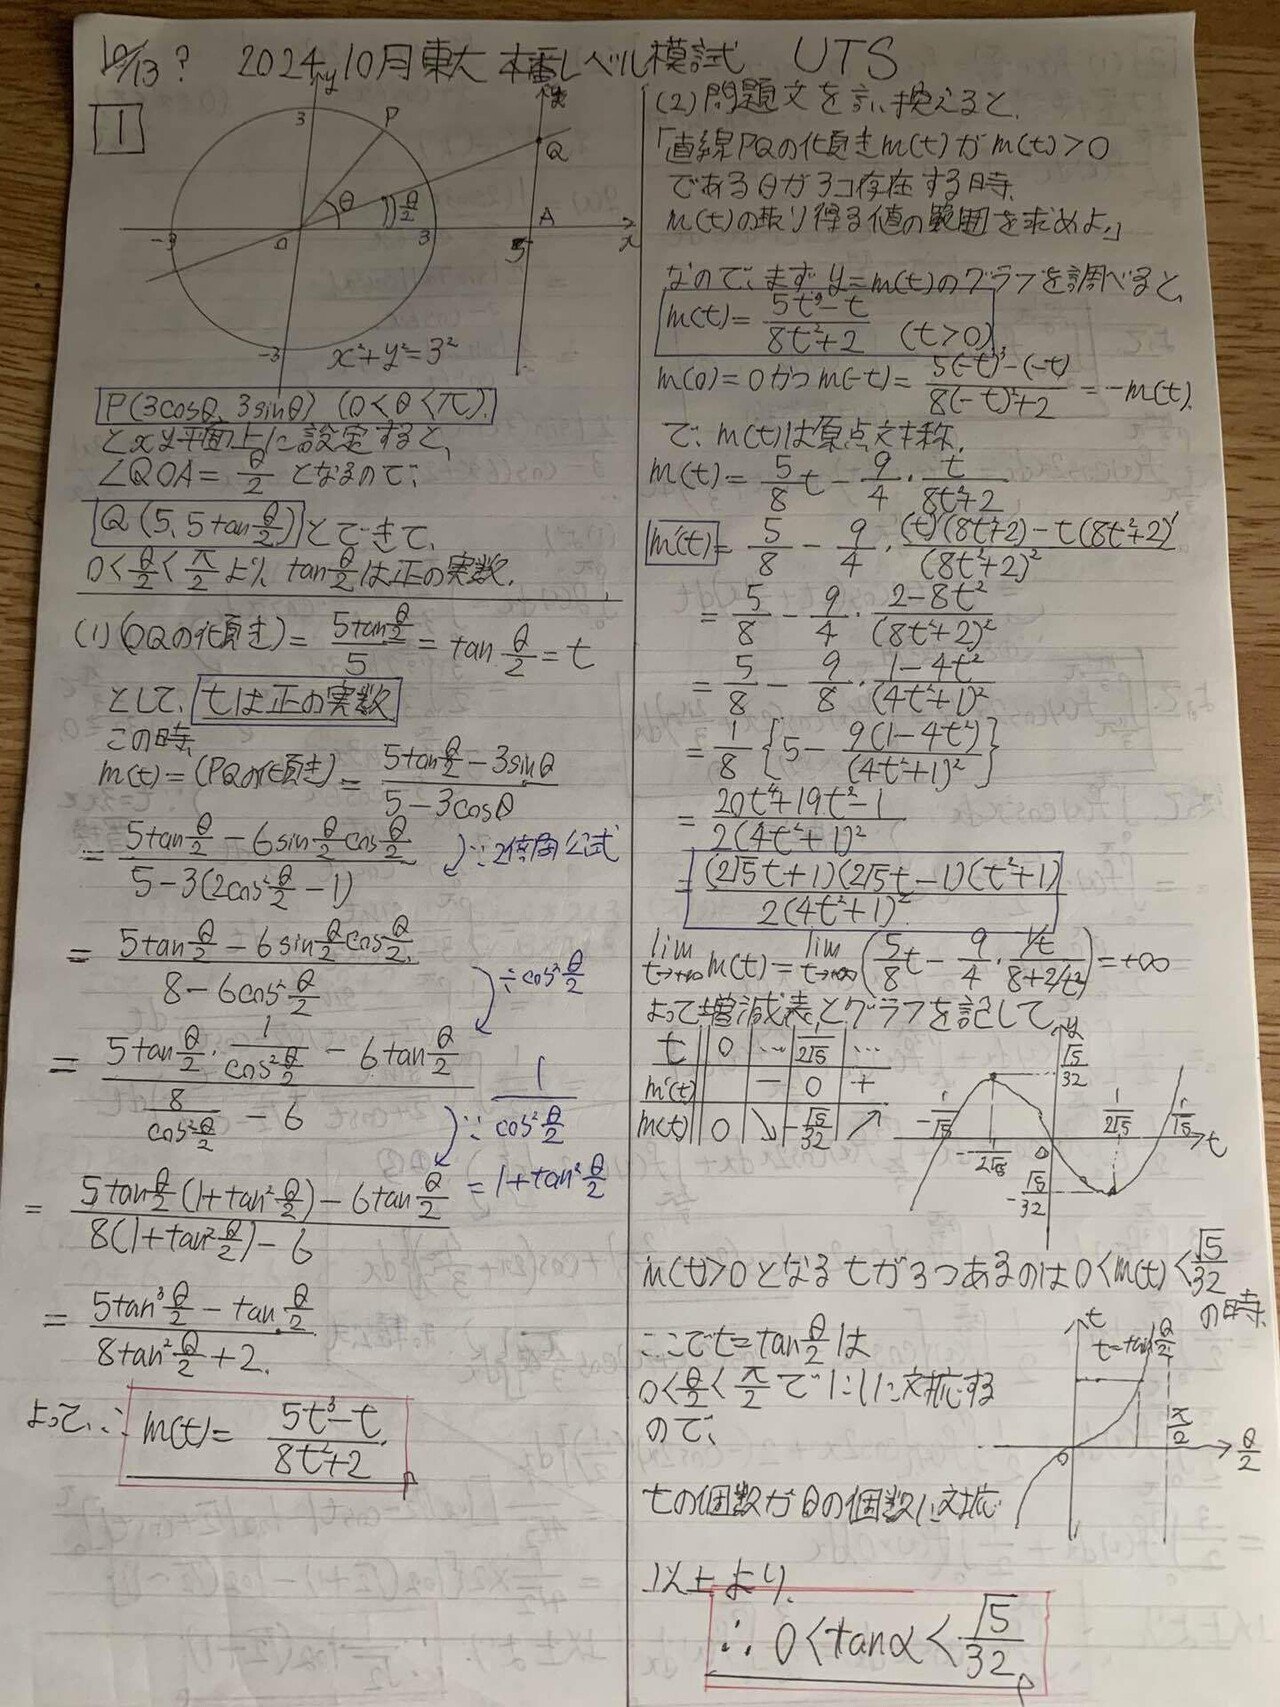 10/13? 2024, 10月東大本番レベル模試 UTS
1
y
3
P
Q
θ
θ/2
A
-3
O
3
5
x
-3
x²+y²=3²
P(3cosθ, 3sinθ) (0<θ<π).
とxy平面上に設定すると、
∠QOA=θ/2 となるので、
Q(5, 5tanθ/2)とできて、
0<θ/2<π/2より、tanθ/2は正の実数.
(1)(OQの傾き)=5tanθ/2/5=tanθ/2=t
として、tは正の実数
この時、
m(t)=(PQの傾き)=(5tanθ/2-3sinθ)/(5-3cosθ)
=(5tanθ/2-6sinθ/2cosθ/2)/(5-3(2cos²θ/2-1)) ∵2倍角公式
=(5tanθ/2-6sinθ/2cosθ/2)/(8-6cos²θ/2)
÷cos²θ/2
=(5tanθ/2・1/cos²θ/2-6tanθ/2)/(8/cos²θ/2-6)
∵1/cos²θ/2
=1+tan²θ/2
=(5tanθ/2(1+tan²θ/2)-6tanθ/2)/(8(1+tan²θ/2)-6)
=(5tan³θ/2-tanθ/2)/(8tan²θ/2+2)
よって、∴m(t)=(5t³-t)/(8t²+2)
(2)問題文を言い換えると、
「直線PQの傾きm(t)がm(t)>0
であるθが3コ存在する時、
m(t)の取り得る値の範囲を求めよ。」
なので、まずy=m(t)のグラフを調べると、
m(t)=(5t³-t)/(8t²+2) (t>0)
m(0)=0かつm(-t)=(5(-t)³-(-t))/(8(-t)²+2)=-m(t).
で、m(t)は原点対称.
m(t)=5/8t-9/4・t/(8t²+2)
m'(t)=5/8-9/4・((t)'(8t²+2)-t(8t²+2)')/(8t²+2)²
=5/8-9/4・(2-8t²)/(8t²+2)²
=5/8-9/8・(1-4t²)/(4t²+1)²
=1/8{5-9(1-4t²)/(4t²+1)²}
=(20t⁴+19t²-1)/2(4t²+1)²
=(2√5t+1)(2√5t-1)(t²+1)/2(4t²+1)²
lim t→+∞ m(t)=lim t→+∞(5/8t-9/4・(1/t)/(8+2/t²))=+∞
よって増減表とグラフを記して、
t 0 … 1/2√5 …
m'(t) - 0 +
m(t) 0 ↘ -√5/32 ↗
y
√5/32
-1/√5
-1/2√5
0
1/2√5
1/√5
t
-√5/32
m(t)>0となるtが3つあるのは0<m(t)<√5/32の時、
ここでt=tanθ/2は
0<θ/2<π/2で1:1に対応する
ので、
t
t=tanθ/2
0
π/2
θ/2
tの個数がθの個数に対応
以上より、
∴0<tanα<√5/32